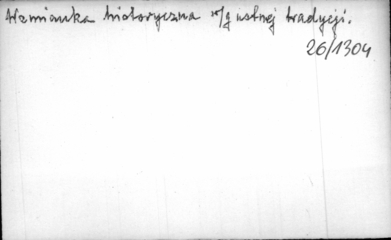 Wzmianka historyczna w/g ustnej tradycji.
26/1304